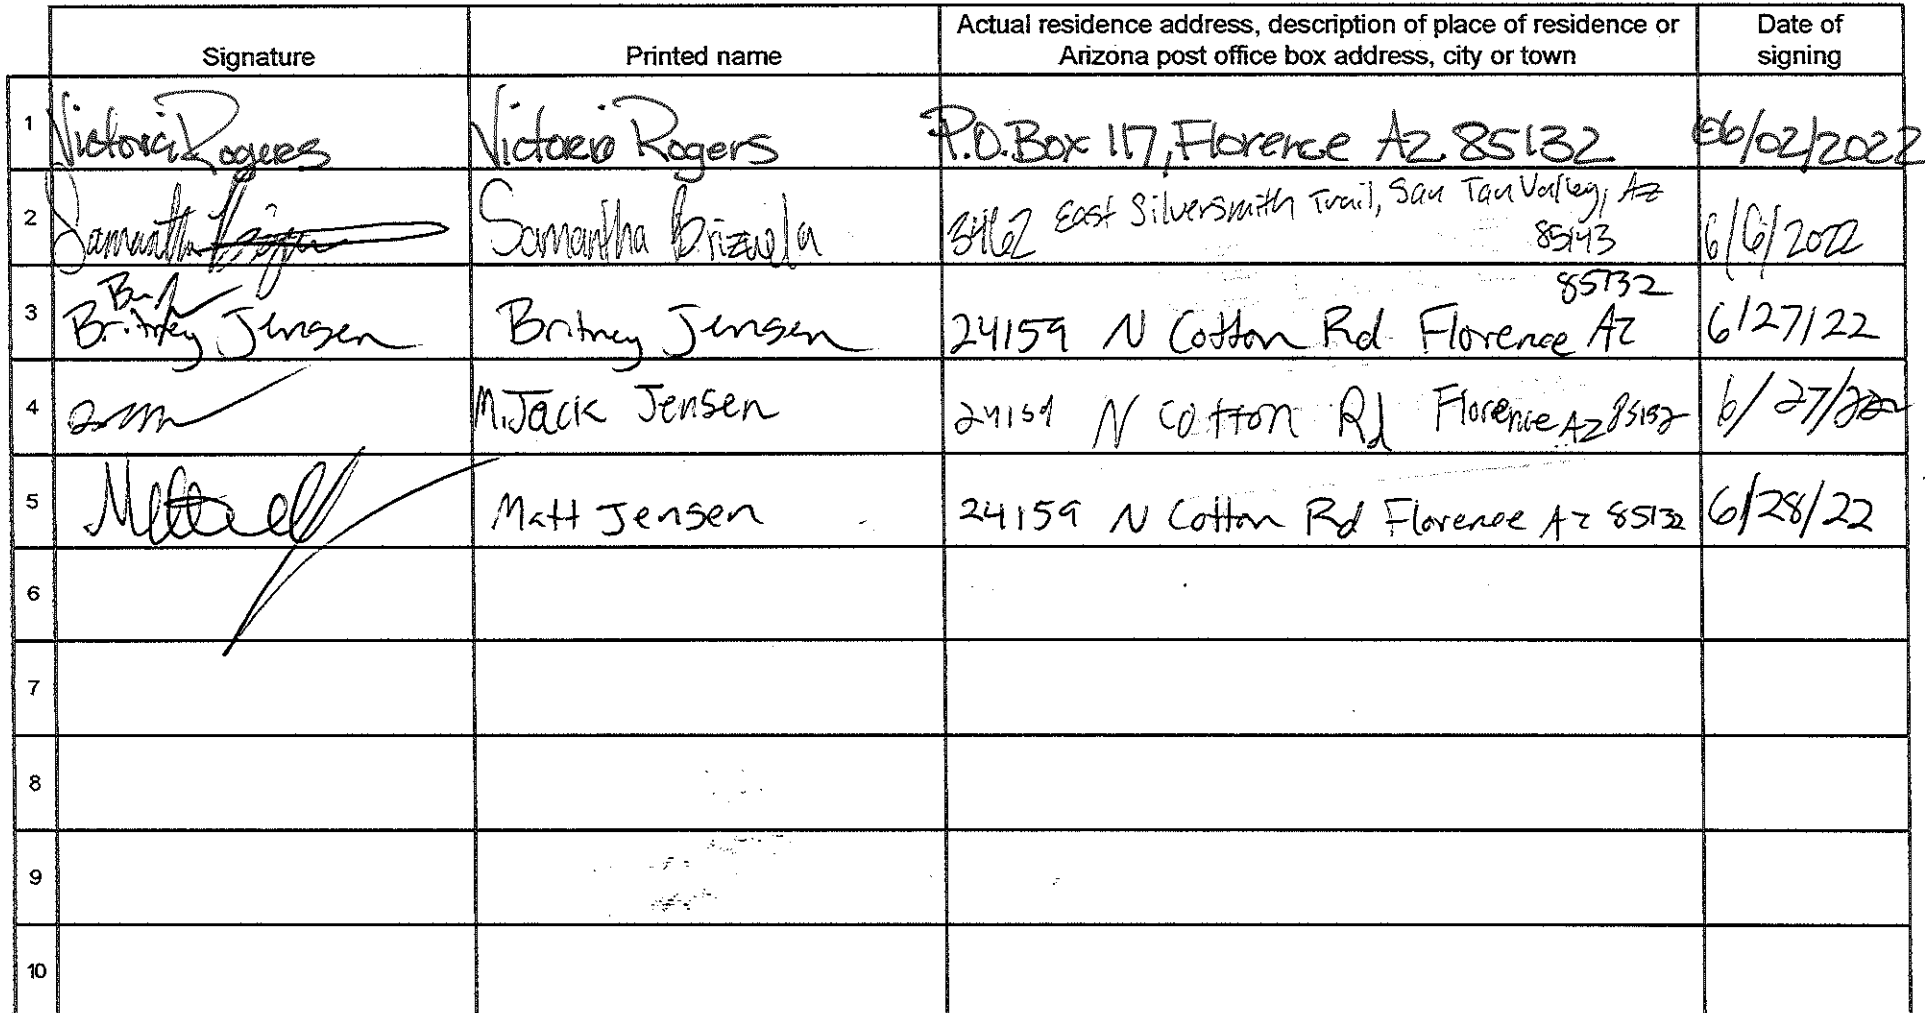 Signature Printed name Actual residence address, description of place of residence or Arizona post office box address, city or town Date of signing
1 Victoria Rogers Victoria Rogers P.O. Box 117, Florence Az 85132 06/02/2022
2 Samantha Samantha Brizuela 3462 East Silversmith Trail, San Tan Valley, Az 85143 6/6/2022
3 Britney Jensen Britney Jensen 24159 N Cotton Rd Florence Az 85132 6/27/22
4 M. Jack Jensen 24159 N Cotton Rd Florence AZ 85132 6/27/22
5 Matt Jensen 24159 N Cotton Rd Florence Az 85132 6/28/22
6
7
8
9
10